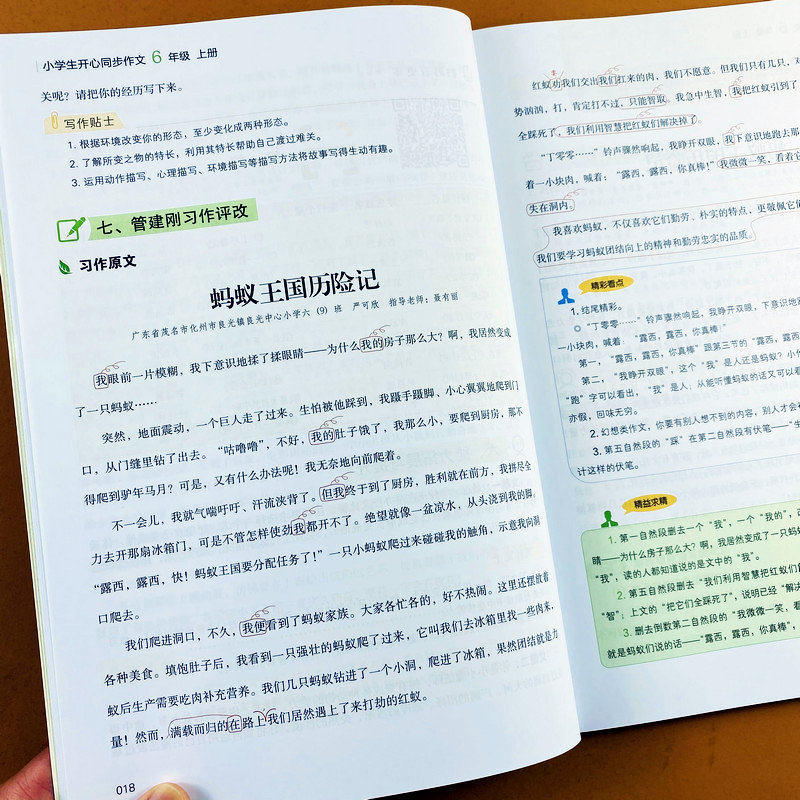 小学生开心同步作文6年级 上册
关呢？请把你的经历写下来。
写作贴士
1. 根据环境改变你的形态，至少变化成两种形态。
2. 了解所变之物的特长，利用其特长帮助自己渡过难关。
3. 运用动作描写、心理描写、环境描写等描写方法将故事写得生动有趣。
七、管建刚习作评改
习作原文
蚂蚁王国历险记
广东省茂名市化州市良光镇良光中心小学六（9）班 严可欣 指导老师：聂有丽
我眼前一片模糊，我下意识地揉了揉眼睛——为什么我的房子那么大？啊，我居然变成
了一只蚂蚁……
突然，地面震动，一个巨人走了过来。生怕被他踩到，我蹑手蹑脚、小心翼翼地爬到门
口，从门缝里钻了出去。“咕噜噜”，不好，我的肚子饿了，我那么小，要爬到厨房，那不
得爬到驴年马月？可是，又有什么办法呢！我无奈地向前爬着。
不一会儿，我就气喘吁吁、汗流浃背了。但我终于到了厨房，胜利就在前方，我拼尽全
力去开那扇冰箱门，可是不管怎样使劲我都开不了。绝望就像一盆凉水，从头浇到我的脚。
“露西，露西，快！蚂蚁王国要分配任务了！”一只小蚂蚁爬过来碰碰我的触角，示意我向洞
口爬去。
我们爬进洞口，不久，我便看到了蚂蚁家族。大家各忙各的，好不热闹。这里还摆放着
各种美食。填饱肚子后，我看到一只强壮的蚂蚁爬了过来，它叫我们去冰箱里找一些肉来，
蚁后生产需要吃肉补充营养。我们几只蚂蚁钻进了一个小洞，爬进了冰箱，果然团结就是力
量！然而，满载而归的在路上我们居然遇上了来打劫的红蚁。
018
红蚁劝我们交出我们扛来的肉，我们不愿意。但我们只有几只，对
势汹汹，打，肯定打不过，只能智取。我急中生智，我把红蚁引到了
全踩死了，我们利用智慧把红蚁们解决掉了。
“丁零零……”铃声骤然响起，我睁开双眼，我下意识地跑去那
着一小块肉，喊着：“露西，露西，你真棒！”我微微一笑，看着它
失在洞内。
我喜欢蚂蚁，不仅喜欢它们勤劳、朴实的特点，更敬佩它们
我们要学习蚂蚁团结向上的精神和勤劳忠实的品质。
精彩看点
1. 结尾精彩。
“丁零零……”铃声骤然响起，我睁开双眼，下意识地
一小块肉，喊着：“露西，露西，你真棒！”
第一，“露西，露西，你真棒”跟第三节的“露西，露西
第二，“我睁开双眼”，这个“我”是人还是蚂蚁？小
“跑”字可以看出，“我”是人，从能听懂蚂蚁的话又可以看
亦假，回味无穷。
2. 幻想类作文，你要有别人想不到的内容，别人才会
3. 第五自然段的“踩”在第二自然段有伏笔——“生
计这样的伏笔。
精益求精
1. 第一自然段删去一个“我”，一个“我的”，
睛——为什么房子那么大？啊，我居然变成了一只蚂
“我”，读的人都知道说的是文中的“我”。
2. 第五自然段删去“我们利用智慧把红蚁们
智”；上文的“把它们全踩死了”，说明已经“解决
3. 删去倒数第二自然段的“我微微一笑，看
就是蚂蚁们说的话——“露西，露西，你真棒”，